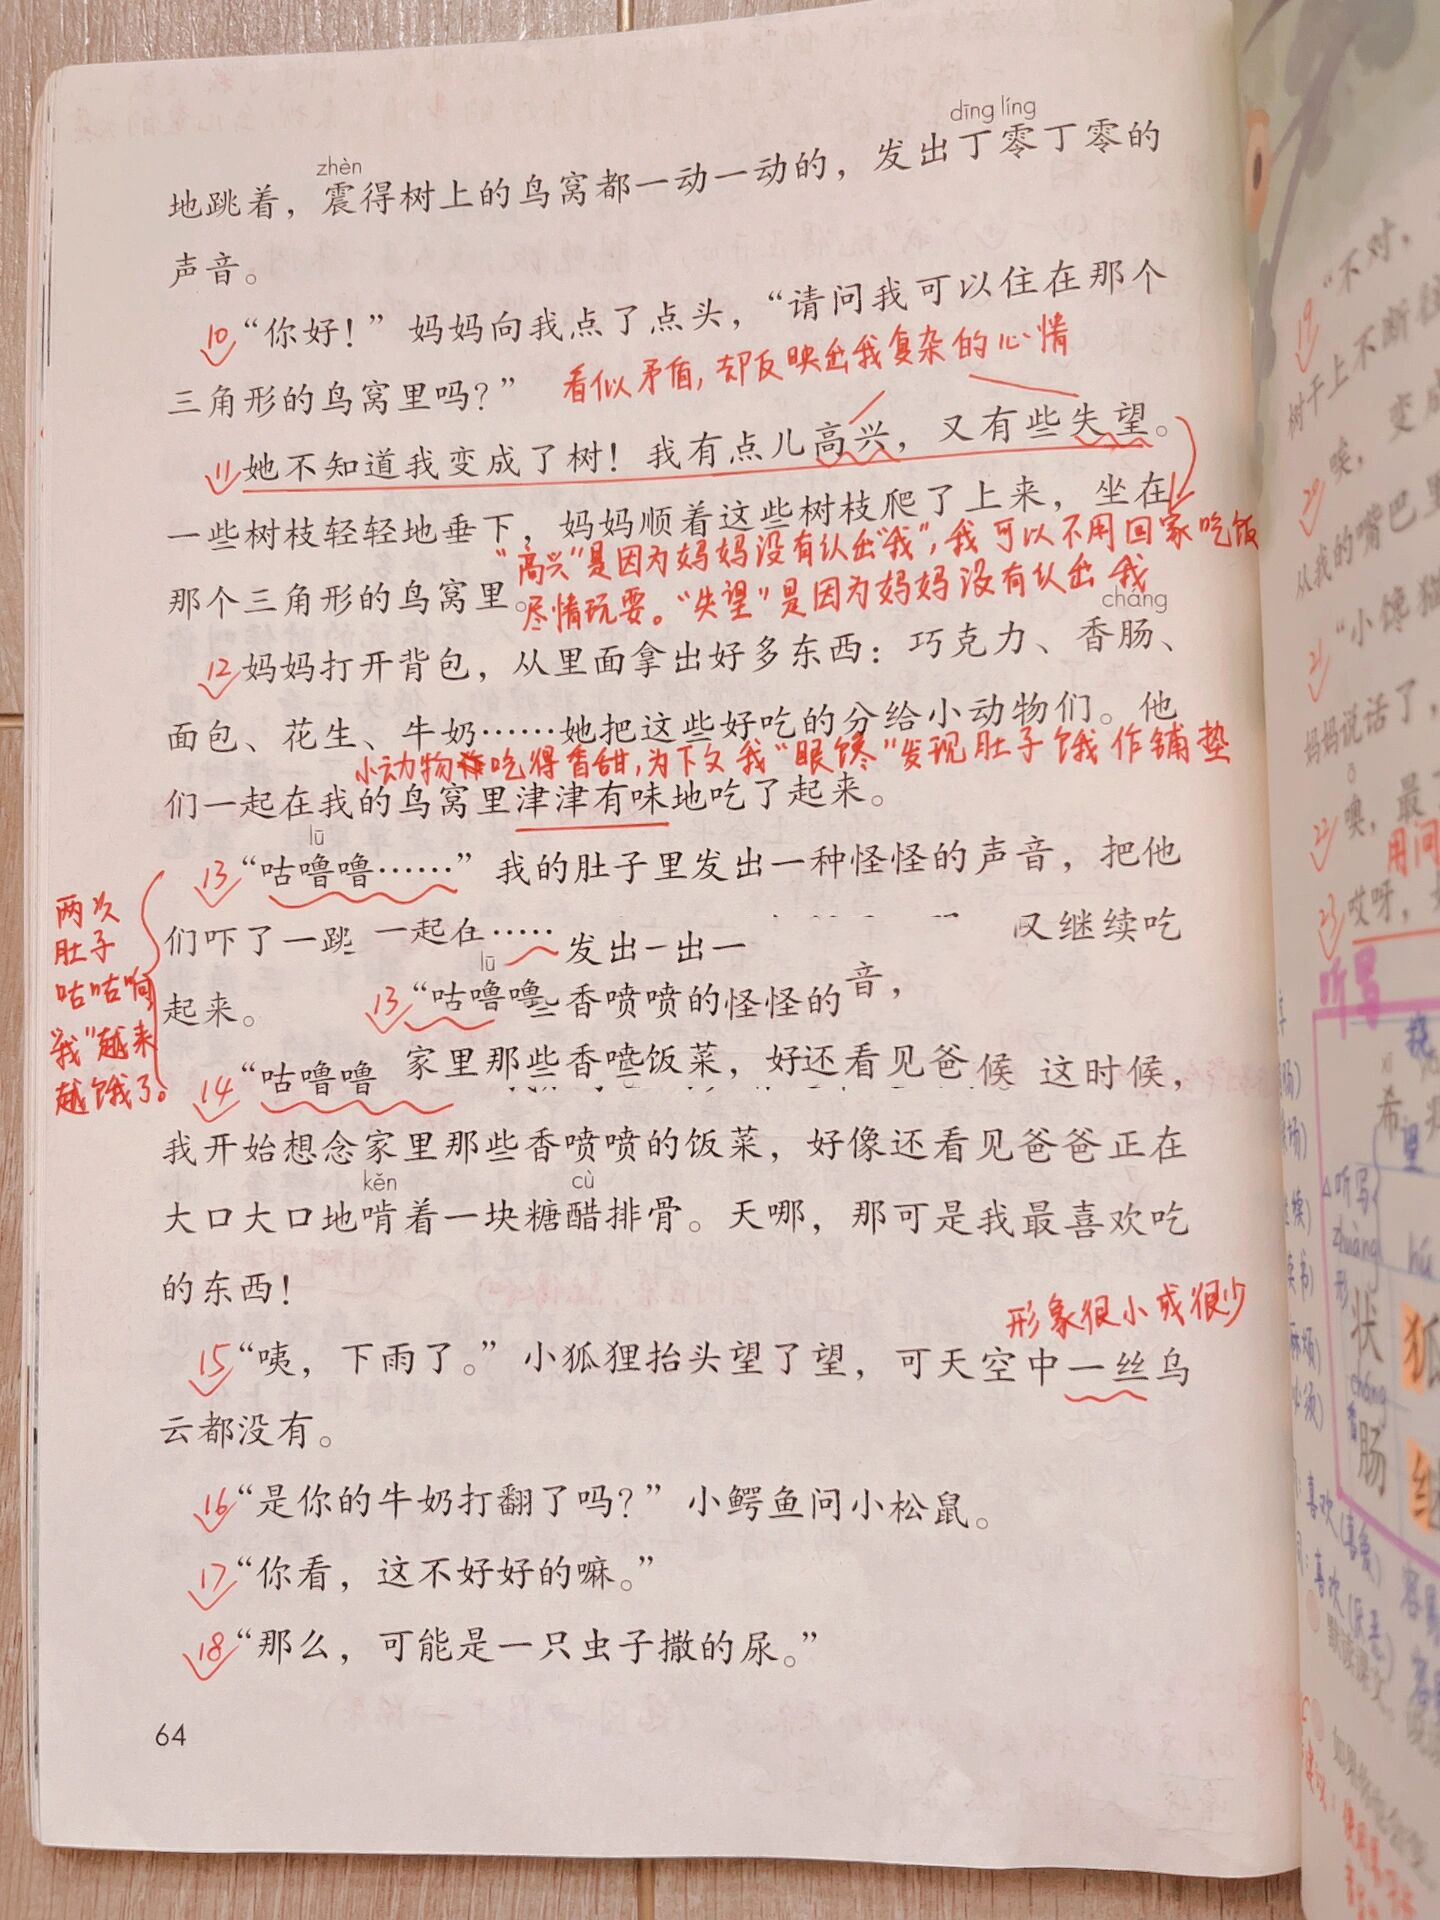 zhèn
dīng líng
地跳着，震得树上的鸟窝都一动一动的，发出丁零丁零的
声音。
10 “你好！”妈妈向我点了点头，“请问我可以住在那个
三角形的鸟窝里吗？”
看似矛盾，却反映出我复杂的心情
11 她不知道我变成了树！我有点儿高兴，又有些失望。
一些树枝轻轻地垂下，妈妈顺着这些树枝爬了上来，坐在
“高兴”是因为妈妈没有认出“我”，我可以不用回家吃饭
那个三角形的鸟窝里。
尽情玩耍。“失望”是因为妈妈没有认出我
cháng
12 妈妈打开背包，从里面拿出好多东西：巧克力、香肠、
面包、花生、牛奶……她把这些好吃的分给小动物们。他
小动物吃得香甜，为下文我“眼馋”发现肚子饿作铺垫
们一起在我的鸟窝里津津有味地吃了起来。
lū
13 “咕噜噜……”我的肚子里发出一种怪怪的声音，把他
们吓了一跳 一起在…… 发出一出一 又继续吃
lū
起来。 13 “咕噜噜些香喷喷的怪怪的音，
14 “咕噜噜 家里那些香喷饭菜，好还看见爸候 这时候，
两次
肚子
咕咕响
“我”越来
越饿了。
我开始想念家里那些香喷喷的饭菜，好像还看见爸爸正在
kěn
cù
大口大口地啃着一块糖醋排骨。天哪，那可是我最喜欢吃
的东西！
形象很小或很少
15 “咦，下雨了。”小狐狸抬头望了望，可天空中一丝乌
云都没有。
16 “是你的牛奶打翻了吗？”小鳄鱼问小松鼠。
17 “你看，这不好好的嘛。”
18 “那么，可能是一只虫子撒的尿。”
64
19 “不对，
树干上不断
变成
20 唉，
从我的嘴巴里
21 “小馋猫
妈妈说话了，
ō
22 噢，最
用问
23 哎呀，
听写
希
里
听写
zhuàng
hú
形
状
狐
cháng
肠
继
喜欢（喜爱）
喜欢